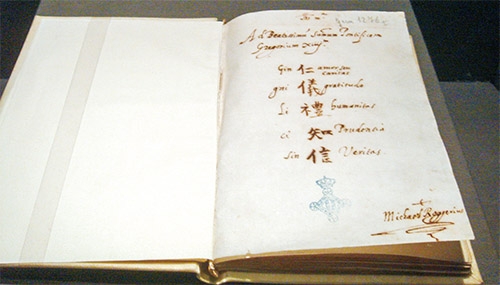 Ges. 1276
A d Beatissimum Summum Pontificem
Gregorium XIII
Gin 仁 amor, seu caritas
gni 儀 gratitudo
Li 禮 humanitas
ci 知 Prudentia
sin 信 Veritas.
Michael Rogerius